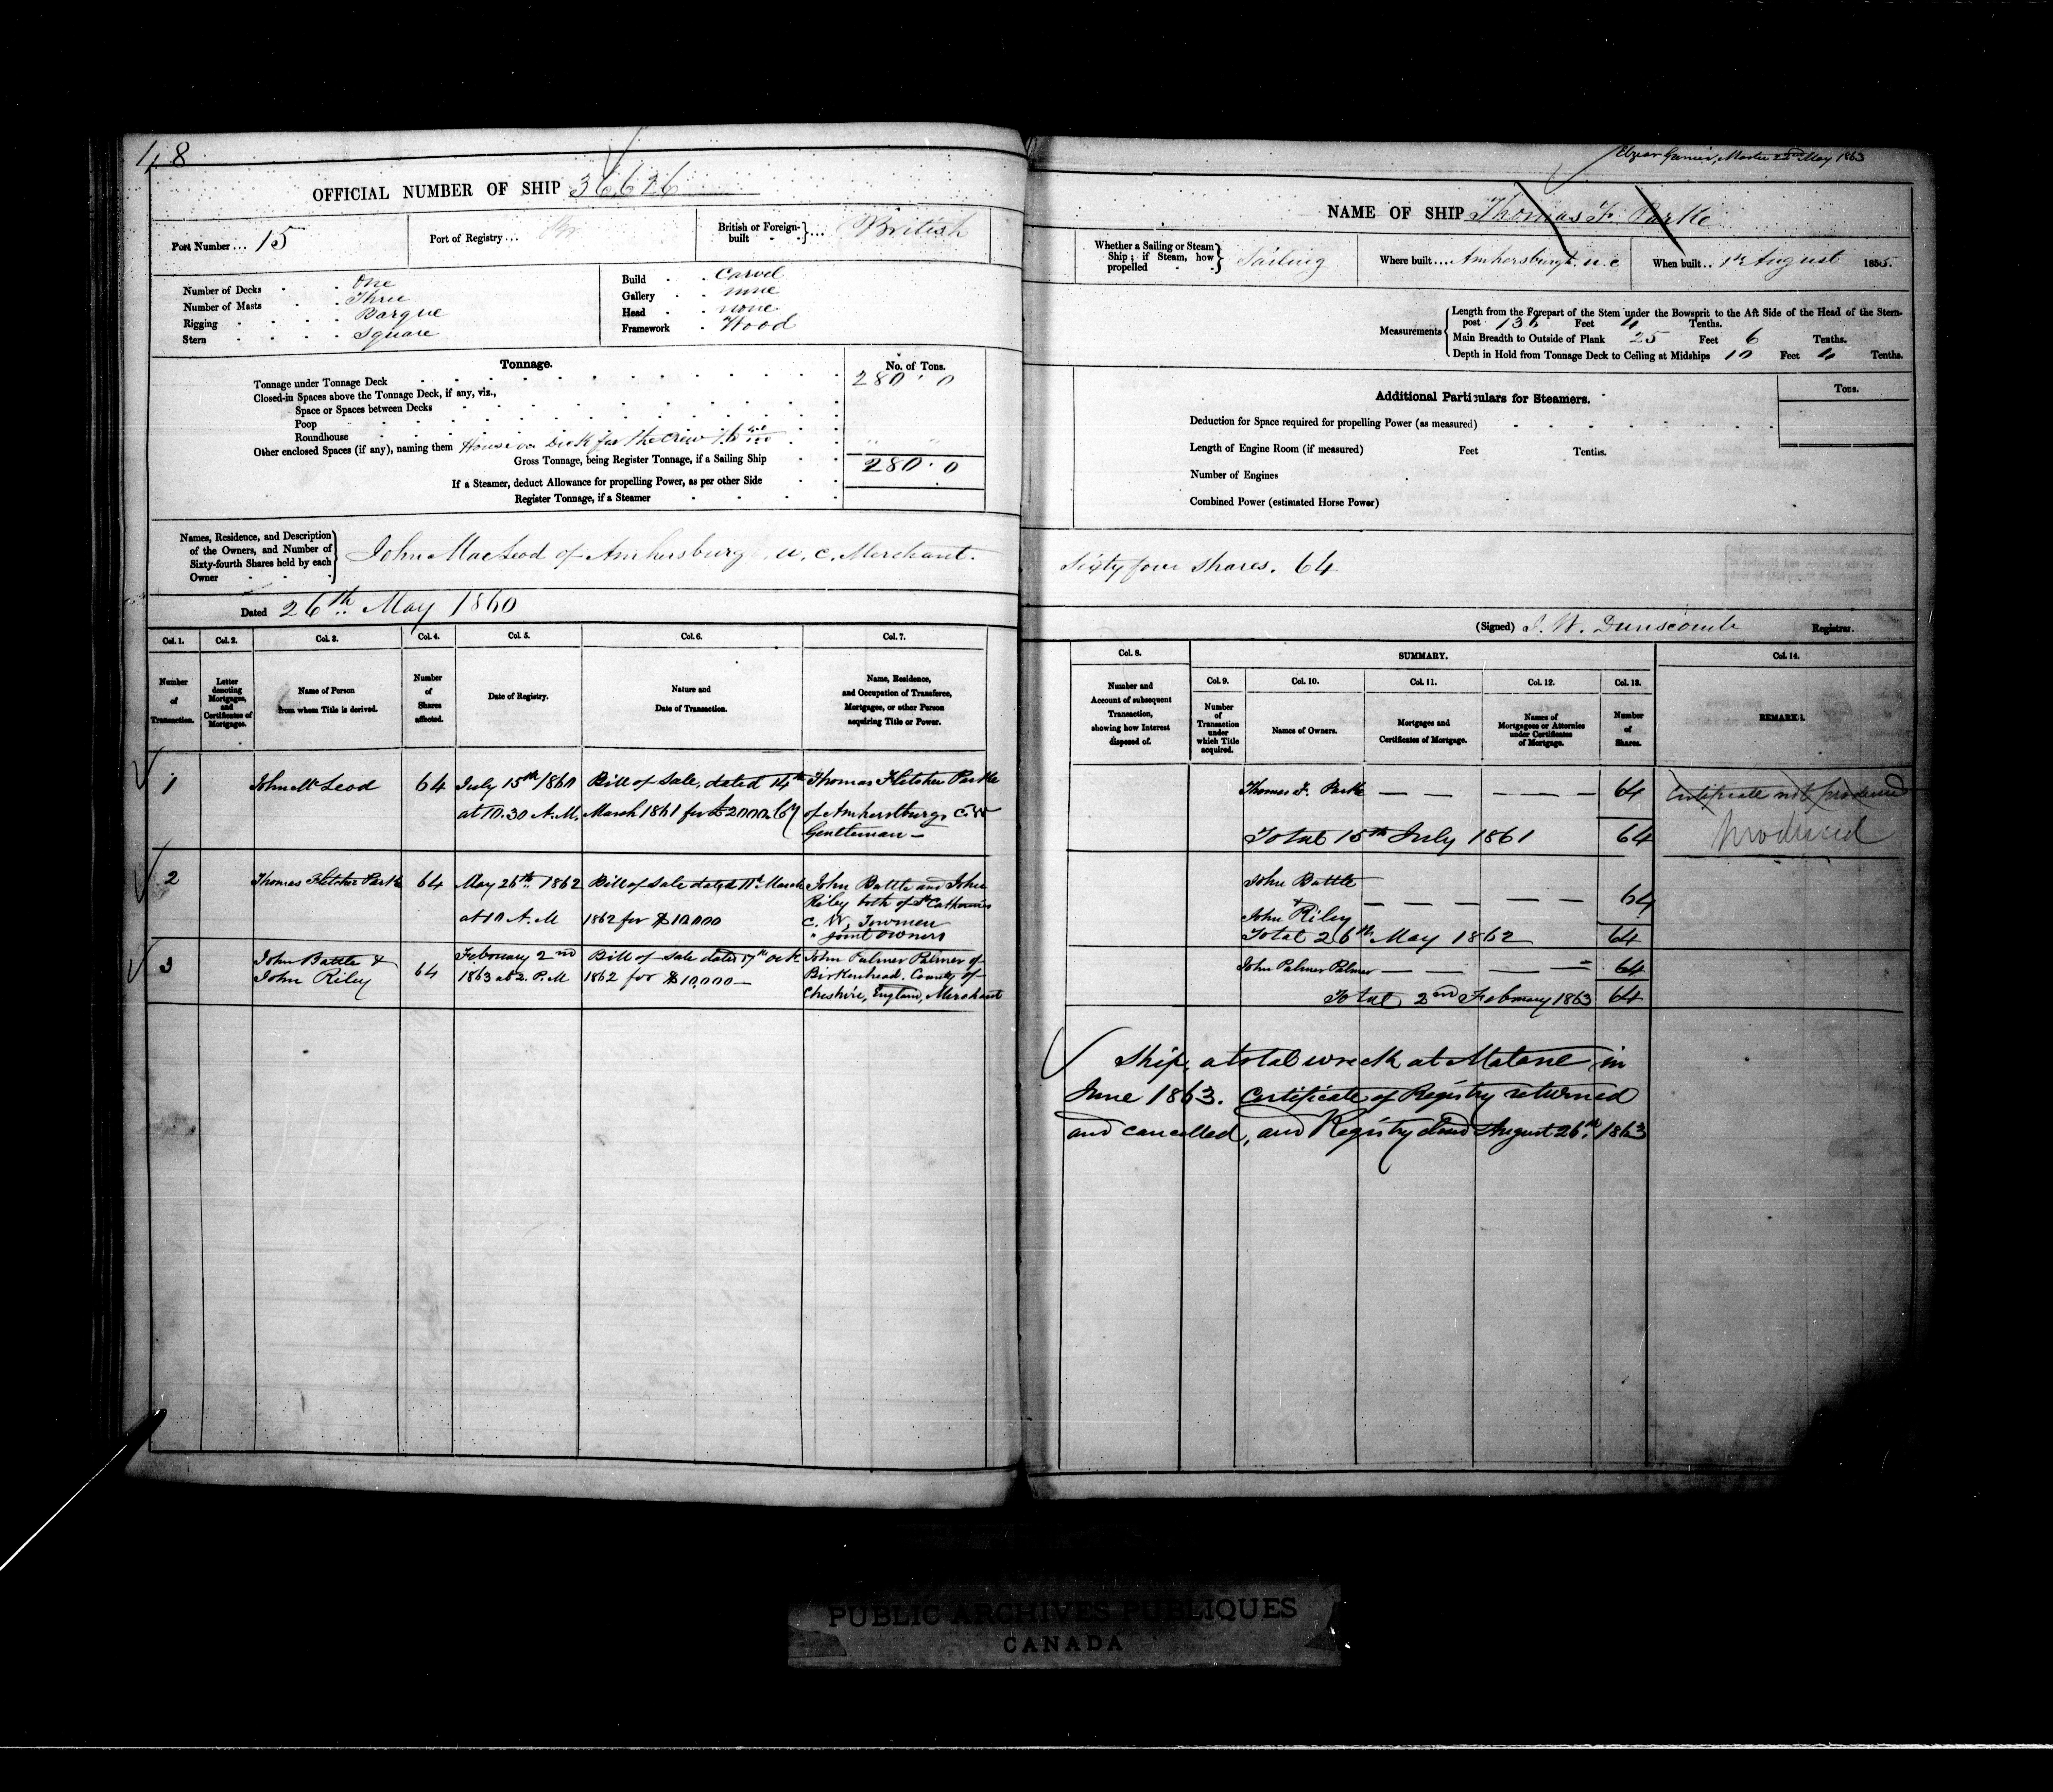 48
OFFICIAL NUMBER OF SHIP 36626
Port Number... 15
Port of Registry...
British or Foreign-built ... British
Number of Decks One
Number of Masts Three
Rigging Barque
Stern Square
Build Carvel
Gallery none
Head none
Framework Wood
Tonnage.
No. of Tons.
Tonnage under Tonnage Deck 280 . 0
Closed-in Spaces above the Tonnage Deck, if any, viz.,
Space or Spaces between Decks
Poop
Roundhouse
Other enclosed Spaces (if any), naming them House on Deck for the crew
Gross Tonnage, being Register Tonnage, if a Sailing Ship 280 . 0
If a Steamer, deduct Allowance for propelling Power, as per other Side
Register Tonnage, if a Steamer
Names, Residence, and Description
of the Owners, and Number of
Sixty-fourth Shares held by each
Owner
John MacLeod of Amhersburg U. C. Merchant.
Dated 26th May 1860
Col. 1. Col. 2. Col. 3. Col. 4. Col. 5. Col. 6. Col. 7.
Number of Transaction.
Letter denoting Mortgages, and Certificates of Mortgages.
Name of Person from whom Title is derived.
Number of Shares affected.
Date of Registry.
Nature and Date of Transaction.
Name, Residence, and Occupation of Transferee, Mortgagee, or other Person acquiring Title or Power.
1 John McLeod 64 July 15th 1861 Bill of Sale, dated 14th Thomas Fletcher Park
at 10.30 A.M. March 1861 for of Amherstburg, C.W
Gentleman
2 Thomas Fletcher Park 64 May 26th 1862 Bill of Sale dated 11th March John Battle and John
Riley both of St Catharines
at 10 A.M 1862 for $10.000 C. W,
joint owners
3 John Battle & February 2nd Bill of Sale dated 17th Octr John Palmer Palmer of
John Riley 64 1863 at 2. P.M 1862 for $10,000 Birkenhead. County of
Cheshire, England, Merchant
Master 22nd May 1863
NAME OF SHIP Thomas F. Parke
Whether a Sailing or Steam Ship; if Steam, how propelled Sailing
Where built.... Amhersburgh. U.C
When built.. 1st August 1855.
Measurements
Length from the Forepart of the Stem under the Bowsprit to the Aft Side of the Head of the Stern-
post 136 Feet 4 Tenths.
Main Breadth to Outside of Plank 25 Feet 6 Tenths.
Depth in Hold from Tonnage Deck to Ceiling at Midships 10 Feet 4 Tenths.
Additional Particulars for Steamers.
Tons.
Deduction for Space required for propelling Power (as measured)
Length of Engine Room (if measured) Feet Tenths.
Number of Engines
Combined Power (estimated Horse Power)
Sixty four Shares. 64
(Signed) J. W. Dunscomb Registrar.
Col. 8. SUMMARY. Col. 14.
Col. 9. Col. 10. Col. 11. Col. 12. Col. 13.
Number and Account of subsequent Transaction, showing how Interest disposed of.
Number of Transaction under which Title acquired.
Names of Owners.
Mortgages and Certificates of Mortgage.
Names of Mortgagees or Attornies under Certificates of Mortgage.
Number of Shares.
REMARKS.
Thomas F. Park 64 Certificate not produced
Total 15th July 1861 64 produced
John Battle
& 64
John Riley
Total 26th May 1862 64
John Palmer Palmer 64
Total 2nd February 1863 64
Ship, a total wreck at Matane in
June 1863. Certificate of Registry returned
and cancelled, and Registry closed August 26th 1863
PUBLIC ARCHIVES PUBLIQUES
CANADA